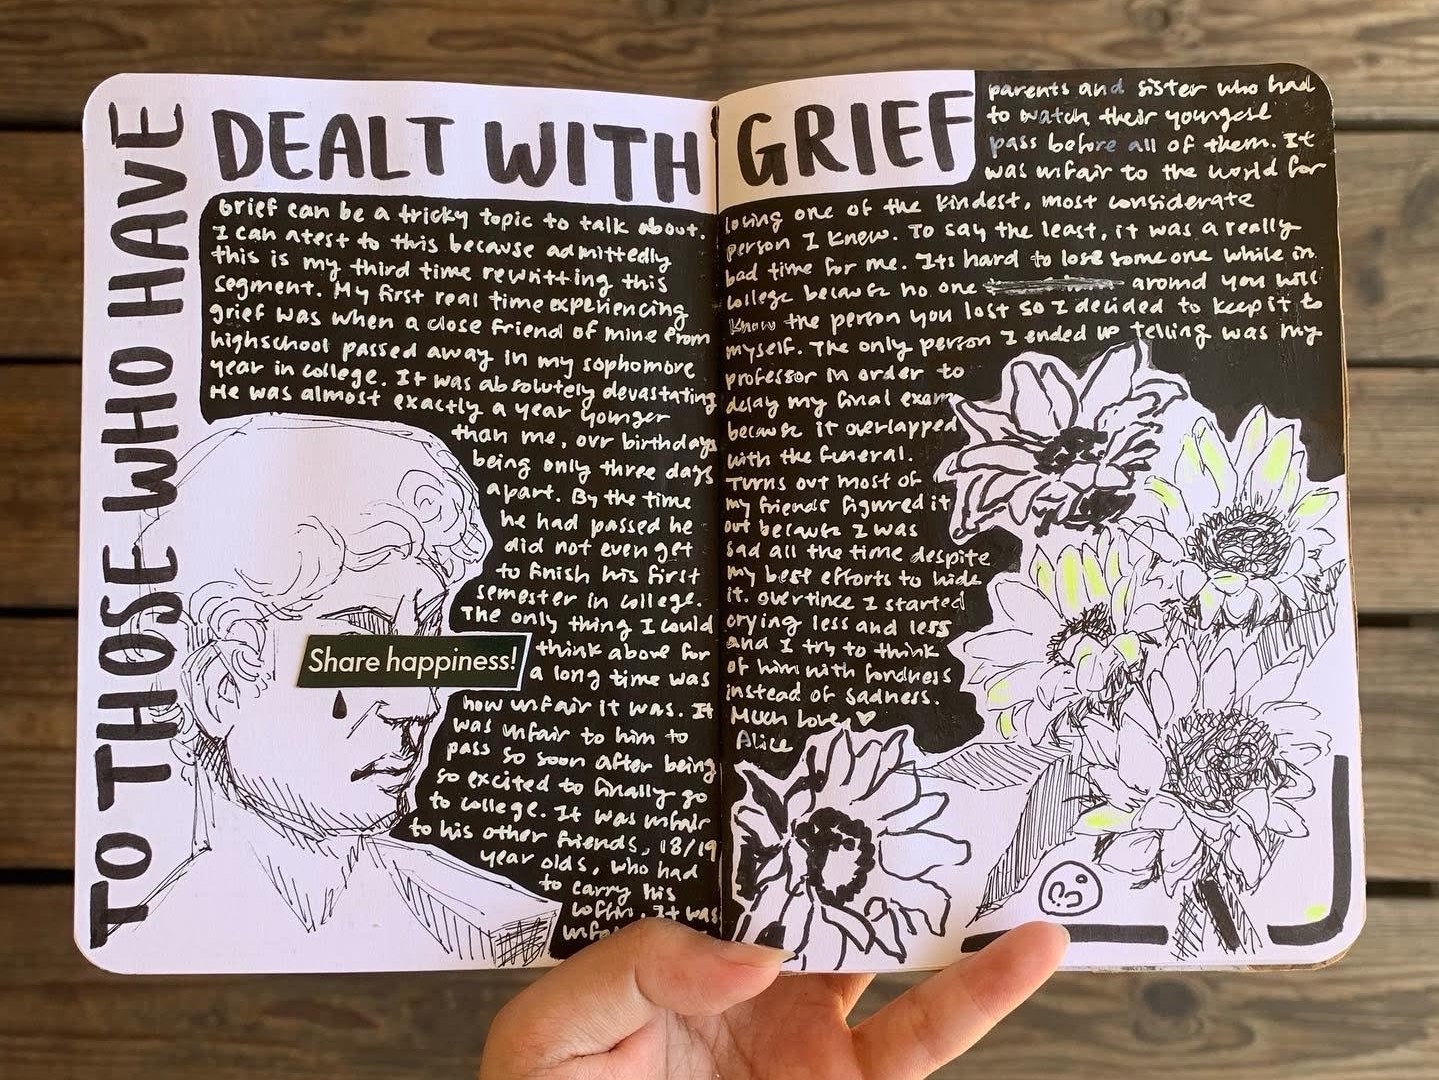 TO THOSE WHO HAVE
DEALT WITH GRIEF
Grief can be a tricky topic to talk about.
I can atest to this because admittedly
this is my third time rewritting this
segment. My first real time experiencing
grief was when a close friend of mine from
highschool passed away in my sophomore
year in college. It was absolutely devastating
He was almost exactly a year younger
than me, our birthdays
being only three days
apart. By the time
he had passed he
did not even get
to finish his first
semester in college.
The only thing I could
think above for
a long time was
how unfair it was. It
was unfair to him to
pass so soon after being
so excited to finally go
to college. It was unfair
to his other friends, 18/19
year olds, who had
to carry his
coffin. It was
Share happiness!
parents and sister who had
to watch their youngest
pass before all of them. It
was unfair to the world for
losing one of the kindest, most considerate
person I knew. To say the least, it was a really
bad time for me. Its hard to lose some one while in
college because no one around you will
know the person you lost so I decided to keep it to
myself. The only person I ended up telling was my
professor in order to
delay my final exam
because it overlapped
with the funeral.
Turns out most of
my friends figured it
out because I was
sad all the time despite
my best efforts to hide
it. overtime I started
crying less and less
and I try to think
of him with fondness
instead of sadness.
Much Love, ♡
Alice